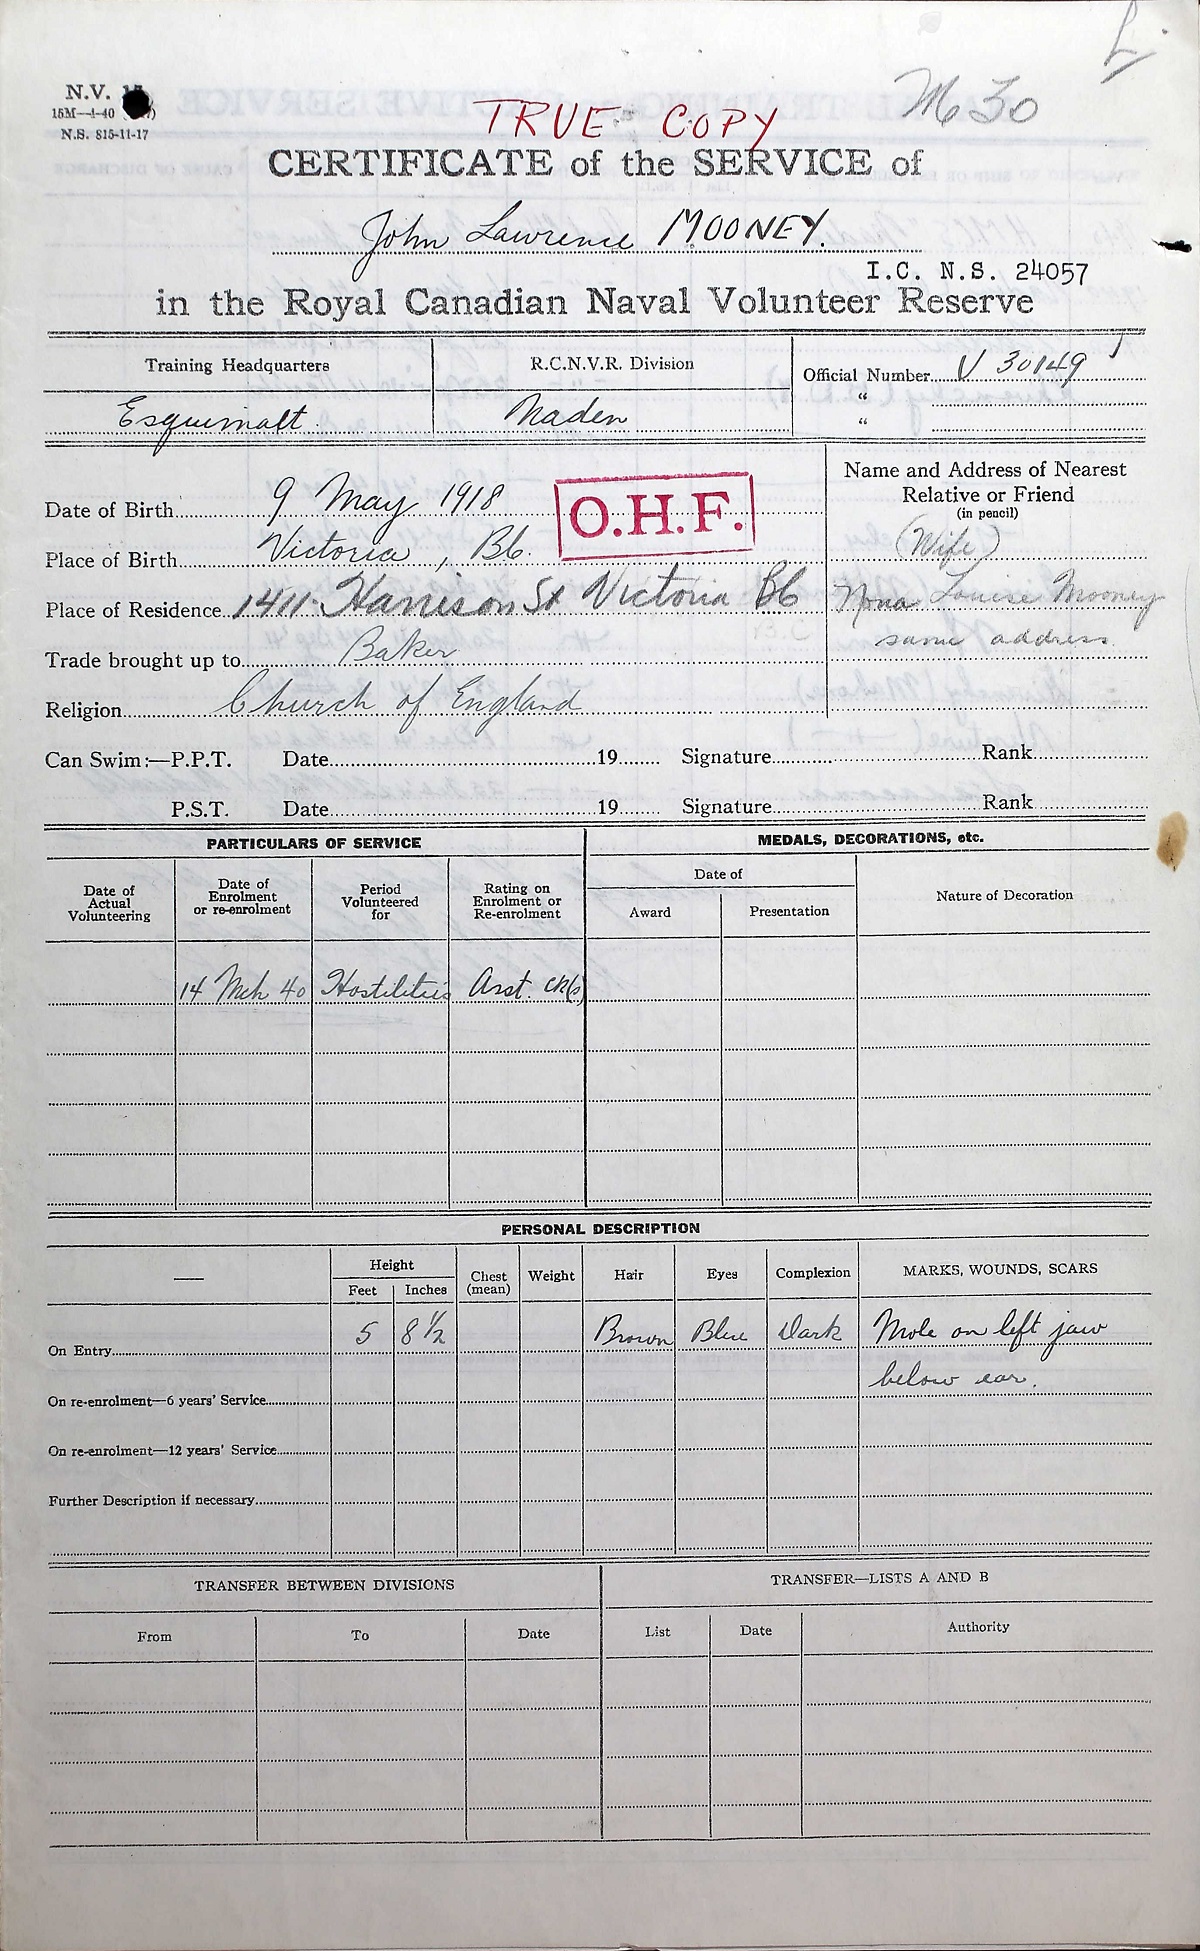 L.
N.V. 15
15M—4-40
N.S. 815-11-17
M 30
TRUE COPY
CERTIFICATE of the SERVICE of
John Lawrence MOONEY.
I.C. N.S. 24057
in the Royal Canadian Naval Volunteer Reserve
Training Headquarters
Esquimalt
R.C.N.V.R. Division
Naden
Official Number V 30149
"
"
Date of Birth 9 May 1918
O.H.F.
Place of Birth Victoria, BC.
Place of Residence 1411 Harrison St Victoria BC
Trade brought up to Baker
Religion Church of England
Name and Address of Nearest
Relative or Friend
(in pencil)
(Wife)
Nona Louise Mooney
same address
Can Swim:—P.P.T. Date 19 Signature Rank
P.S.T. Date 19 Signature Rank
PARTICULARS OF SERVICE
MEDALS, DECORATIONS, etc.
Date of Actual Volunteering
Date of Enrolment or re-enrolment
Period Volunteered for
Rating on Enrolment or Re-enrolment
Date of
Award
Presentation
Nature of Decoration
14 Mch 40 Hostilities Asst. Ck(s)
PERSONAL DESCRIPTION
—
Height
Feet Inches
Chest (mean)
Weight
Hair
Eyes
Complexion
MARKS, WOUNDS, SCARS
On Entry 5 8½ Brown Blue Dark Mole on left jaw
below ear.
On re-enrolment—6 years' Service
On re-enrolment—12 years' Service
Further Description if necessary
TRANSFER BETWEEN DIVISIONS
TRANSFER—LISTS A AND B
From To Date List Date Authority